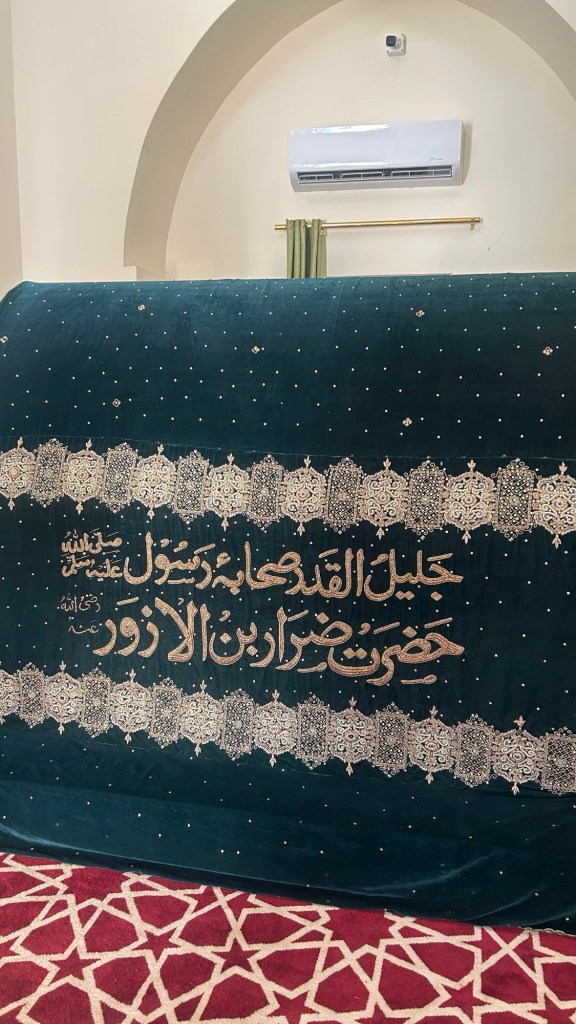 جَلِيلُ القَدَر صَحَابِیٔ رَسُوْل صَلَّی اللهُ عَلَيْهِ وَسَلَّم
حَضِرَتْ ضِرَار بنُ الازوَر رَضِیَ اللهُ عَنهُ